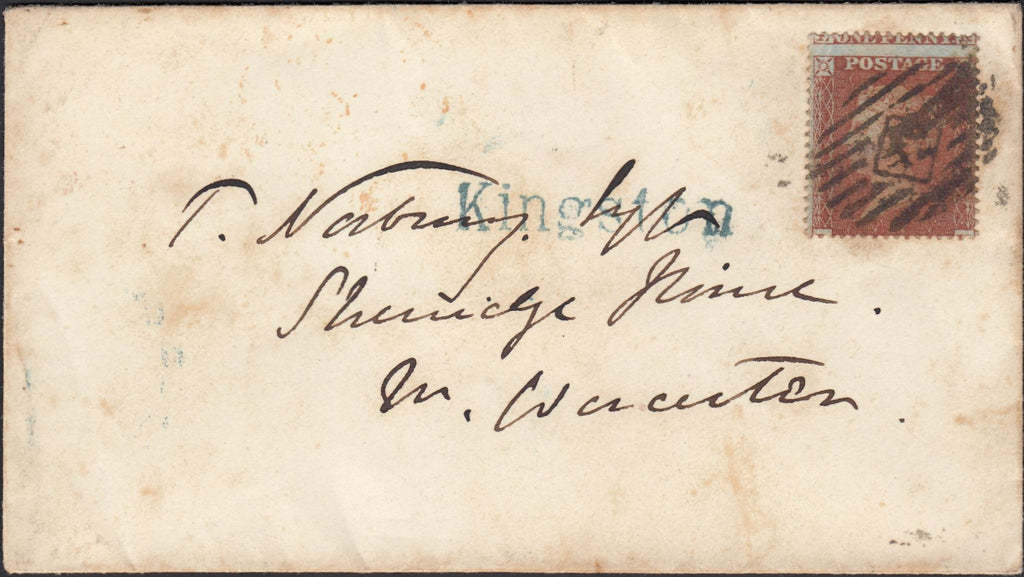 ONE PENNY
POSTAGE
Kingston
T. Norbury. Esqr
Sherridge House.
Nr. Worcester.